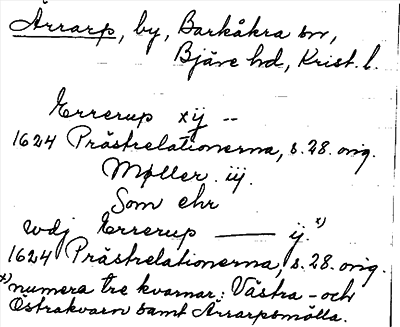 Ärrarp, by, Barkåkra sn,
Bjäre hd, Krist. l.
Errerup xij --
1624 Prästrelationerna, s. 28. orig.
Møller. iij.
Som ehr
wdj Errerup —— ij. x)
1624 Prästrelationerna, s. 28. orig.
x) numera tre kvarnar: Västra- och
Östrakvarn samt Ärrarpsmölla.